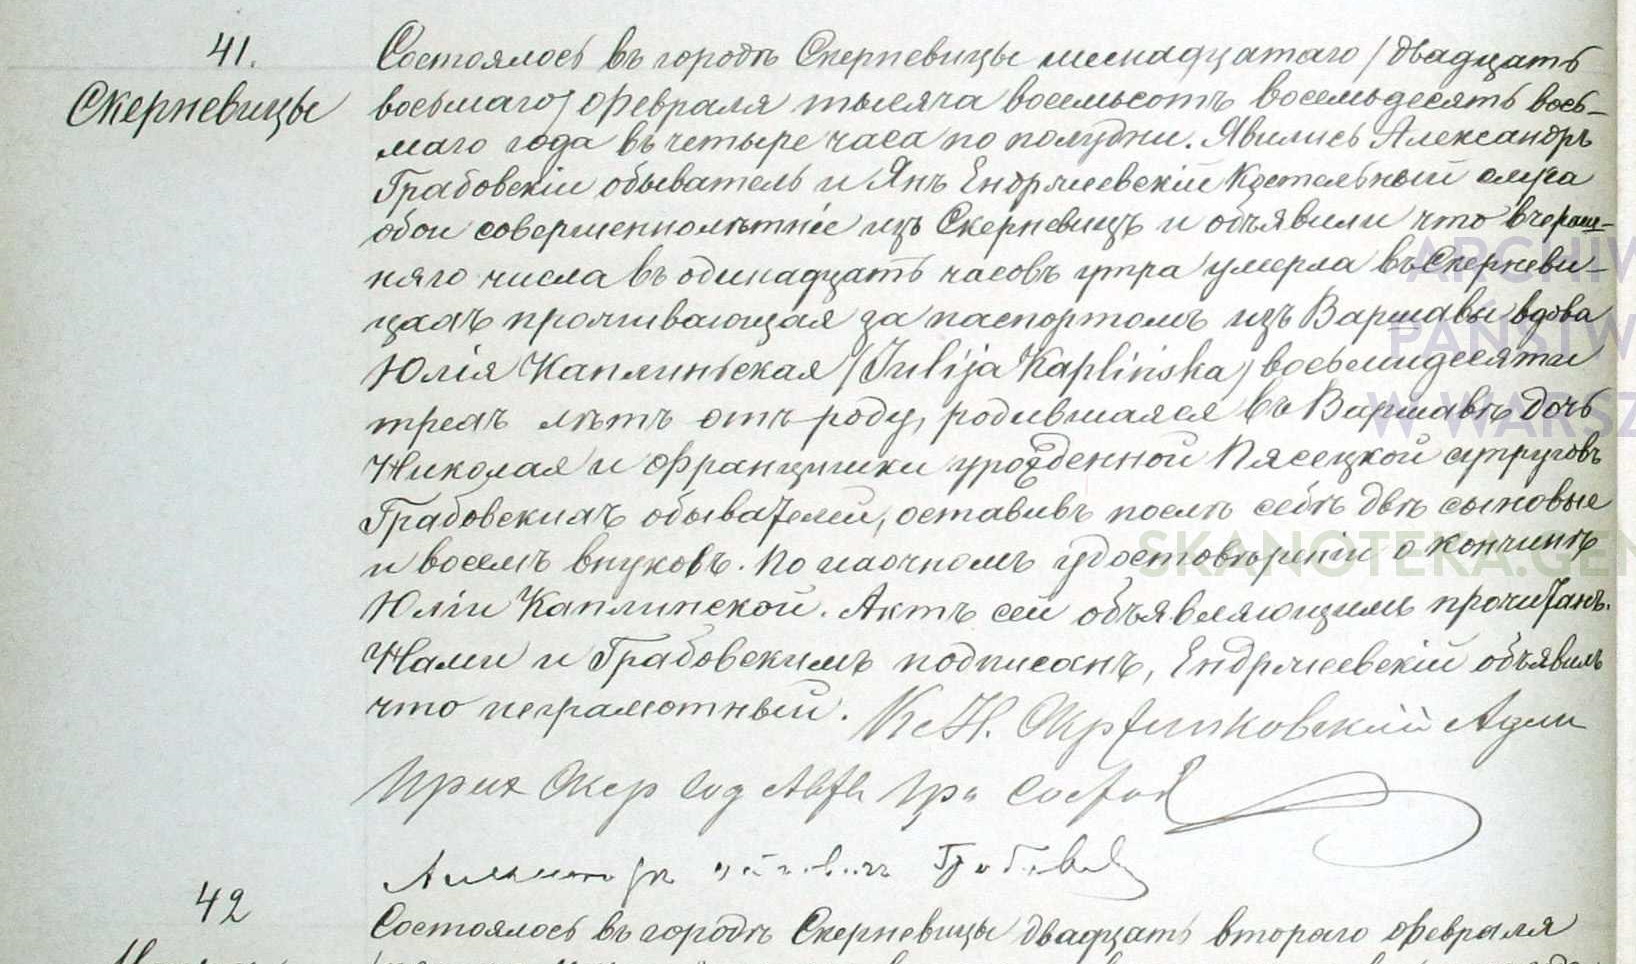 41.
Скерневицы
Состоялось въ городѣ Скерневицы шеснадцатаго /двадцать
восьмаго/ Февраля тысяча восемьсотъ восемьдесятъ вось-
маго года въ четыре часа по полудни. Явились Александръ
Грабовскій обыватель и Янъ Ендржеевскій Костельный слуга
обои совершеннолѣтніе изъ Скерневицъ и объявили что вчераш-
няго числа въ одинадцать часовъ утра умерла въ Скерневи-
цахъ проживающая за паспортомъ изъ Варшавы вдова
Юлія Каплинская /Julija Kaplińska/ восьмидесяти
трехъ лѣтъ отъ роду, родившаяся въ Варшавѣ дочь
Николая и Францишки урожденной Пясецкой супруговъ
Грабовскихъ обывателей, оставивъ послѣ себѣ двѣ сыновье
и восемъ внуковъ. По наочномъ удостовѣреніи о кончинѣ
Юліи Каплинской. Актъ сей объявляющимъ прочитанъ.
Нами и Грабовскимъ подписанъ, Ендржеевскій объявилъ
что неграмотный. Кс Н. Адми
Прих Скер Сод Акты Гра Сост
ARCHIW
PAŃSTW
W WARSZ
SKANOTEKA.GEN
42
Состоялось въ городѣ Скерневицы двадцать втораго Февраля